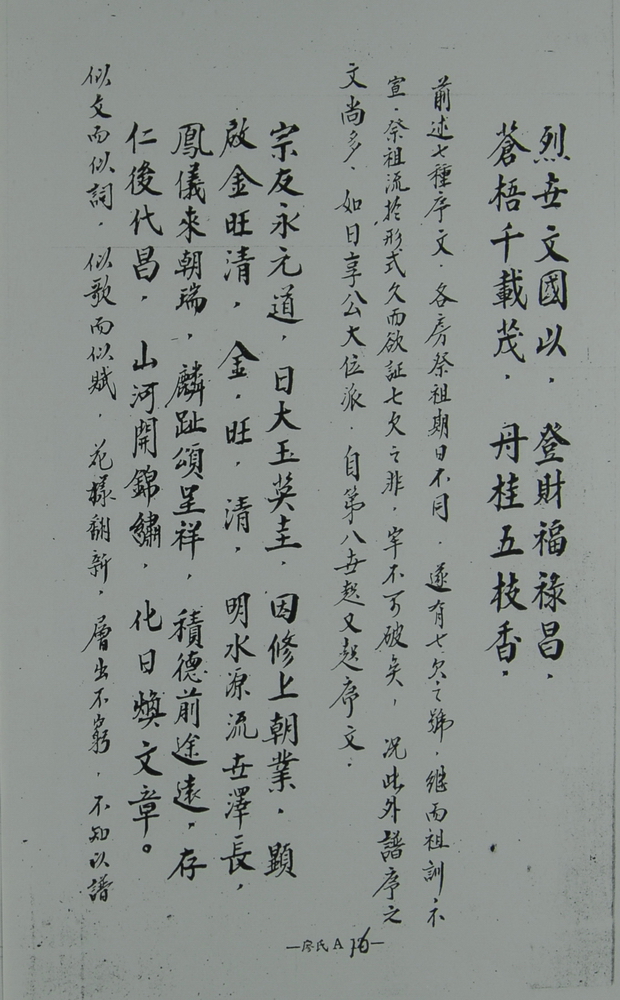 烈世文國以，登財福祿昌．
蒼梧千載茂．丹桂五枝香．
前述七種序文．各房祭祖期日不同．遂有七欠之號．繼而祖訓不
宣．祭祖流於形式久而欲証七欠之非．牢不可破矣，況此外譜序之
文尚多．如日享公大位派．自第八世起又起序文．
宗友永元道，日大玉英圭．因修上朝業．顯
啟金旺清，金．旺．清．明水源流世澤長，
鳳儀來朝瑞，麟趾頌呈祥，積德前途遠，存
仁後代昌，山河開錦繡．化日煥文章。
似文而似詞．似歌而似賦．花樣翻新．層出不窮．不知以譜
—廖氏A16—